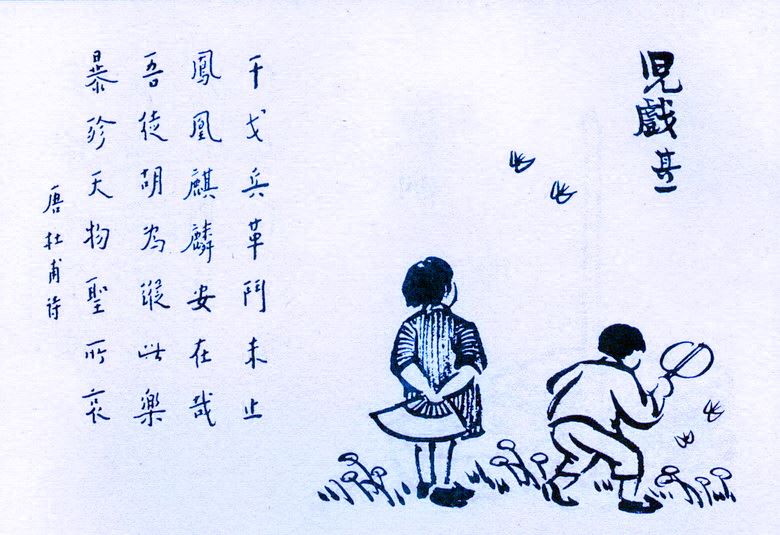 兒戲 其一
干戈兵革鬥未止
鳳凰麒麟安在哉
吾徒胡為縱此樂
暴殄天物聖所哀
唐杜甫詩